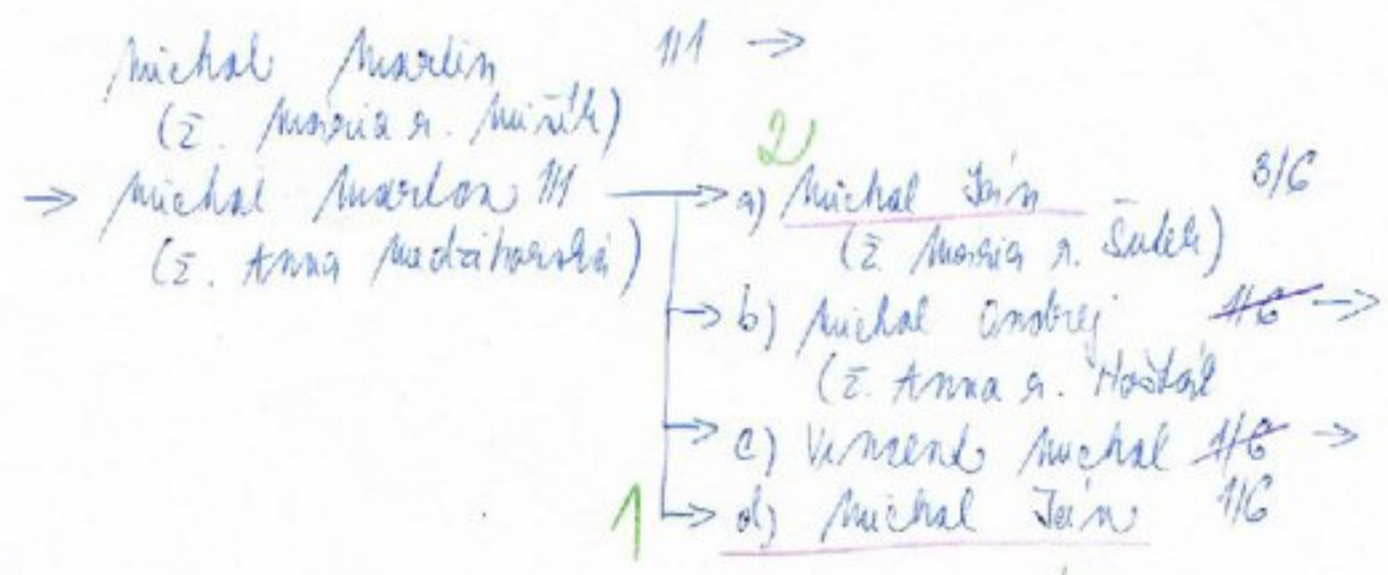 Michal Martin 1/1 →
(ž. Mária r. Mižík)
→ Michal Martin 1/1 →
(ž. Anna Medzihorská)
2
a) Michal Ján 3/6
(ž. Mária r. Šutek)
b) Michal Ondrej 1/6 →
(ž. Anna r. Hošták
c) Vincend Michal 1/6 →
1
d) Michal Ján 1/6